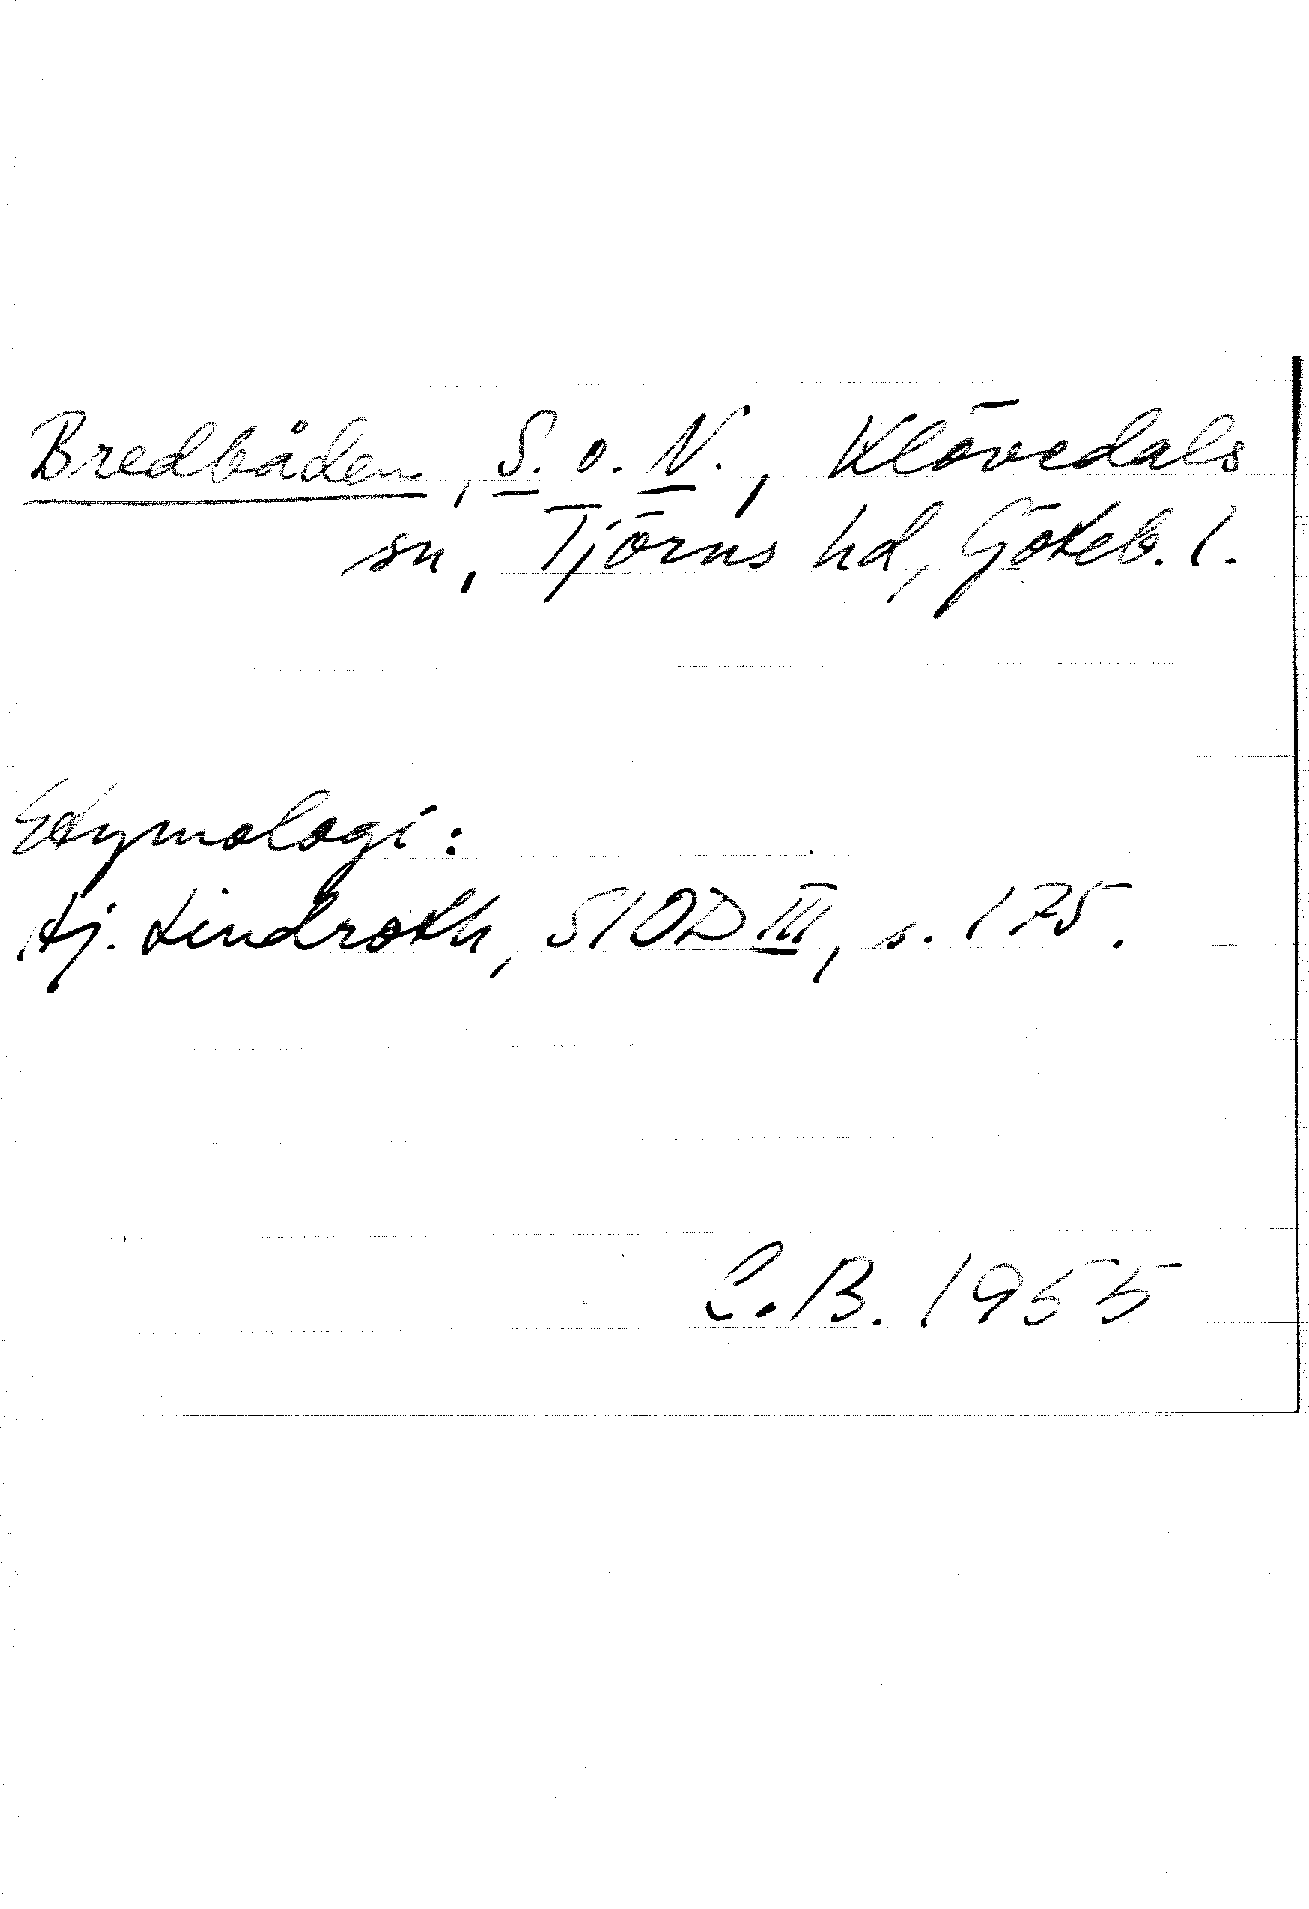 Bredbåden, S. o. N., Klövedals
sn, Tjörns hd, Göteb. l.
Etymologi:
Hj. Lindroth, SIOD III, s. 175.
C.B. 1955